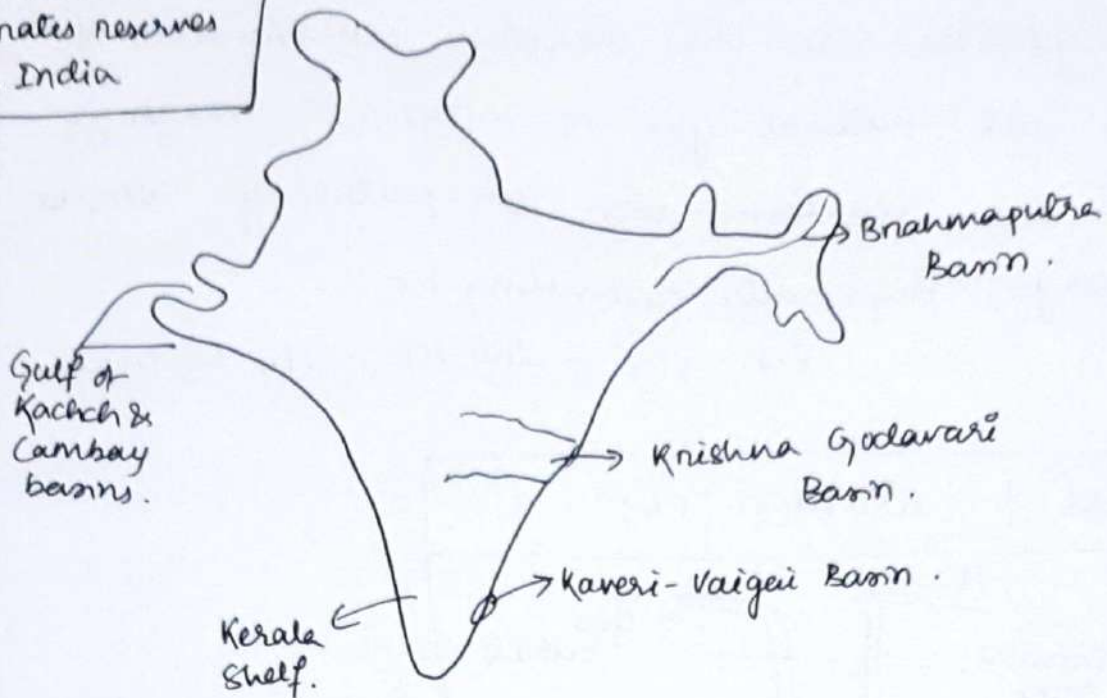 reserves
India
Brahmaputra
Basin.
Gulf of
Kachch &
Cambay
basins.
Krishna Godavari
Basin.
Kaveri-Vaigai Basin.
Kerala
Shelf.